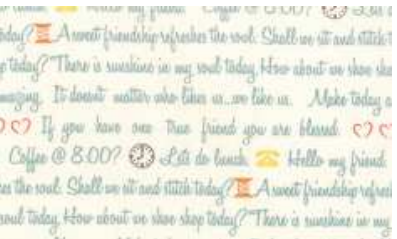 my friend. Coffee @ 8:00? Lets d
today? A sweet friendship refreshes the soul. Shall we sit and stitch t
today? "There is sunshine in my soul today. How about we shoe sho
mazing. It doesnt matter who likes us...we like us. Make today a
If you have one True friend you are blessed.
Coffee @ 8:00? Lets do lunch. Hello my friend.
es the soul. Shall we sit and stitch today? A sweet friendship refres
soul today. How about we shoe shop today? "There is sunshine in my